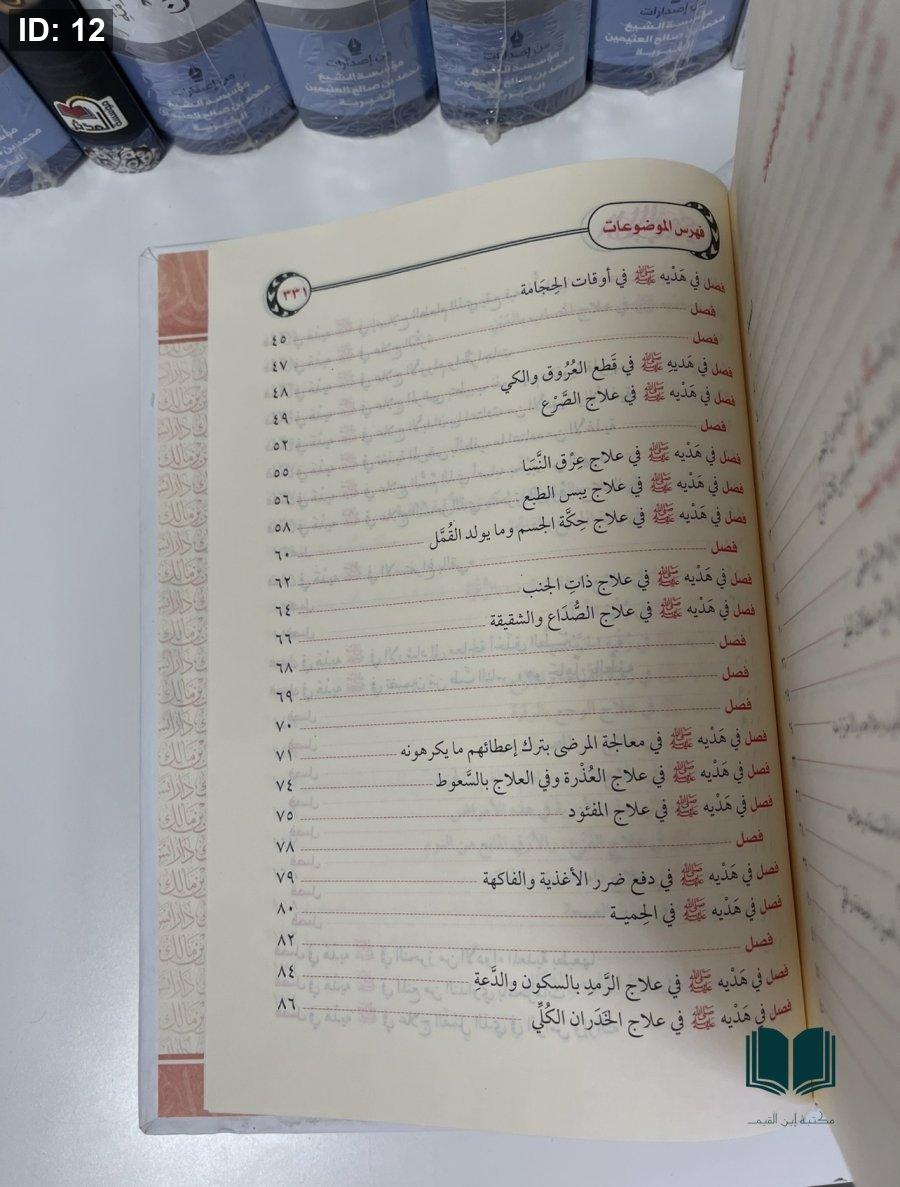 ID: 12
من إصدارات
مؤسسة الشيخ
محمد بن صالح العثيمين
الخيرية
من إصدارات
مؤسسة الشيخ
محمد بن صالح العثيمين
الخيرية
من إصدارات
مؤسسة الشيخ
محمد بن صالح العثيمين
الخيرية
من إصدارات
مؤسسة الشيخ
محمد بن صالح العثيمين
الخيرية
فهرس الموضوعات
٣٣١
فصل في هَدْيه ﷺ في أوقات الحِجَامة ٤٥
فصل ٤٧
فصل ٤٨
فصل في هَديهِ ﷺ في قَطع العُرُوق والكي ٤٩
فصل في هَدْيه ﷺ في علاج الصَّرْع ٥٢
فصل ٥٥
فصل في هَدْيه ﷺ في علاج عِرْق النَّسَا ٥٦
فصل في هَدْيه ﷺ في علاج يبس الطبع ٥٨
فصل في هَدْيه ﷺ في علاج حِكَّة الجسم وما يولد القُمَّل ٦٠
فصل ٦٢
فصل في هَدْيه ﷺ في علاج ذاتِ الجنب ٦٤
فصل في هَدْيه ﷺ في علاج الصُّدَاع والشقيقة ٦٦
فصل ٦٨
فصل ٦٩
فصل ٧٠
فصل في هَدْيه ﷺ في معالجة المرضى بترك إعطائهم ما يكرهونه ٧١
فصل في هَدْيه ﷺ في علاج العُذْرة وفي العلاج بالسَّعوط ٧٤
فصل في هَدْيه ﷺ في علاج المفئود ٧٥
فصل ٧٨
فصل في هَدْيه ﷺ في دفع ضرر الأغذية والفاكهة ٧٩
فصل في هَدْيه ﷺ في الحِميـة ٨٠
فصل ٨٢
فصل في هَدْيه ﷺ في علاج الرَّمدِ بالسكون والدَّعةِ ٨٤
فصل في هَدْيه ﷺ في علاج الخَدَران الكُلِّي ٨٦
مكتبة إبن القيم